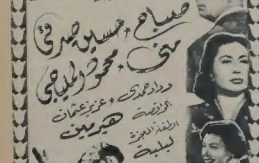 صباح • حسين صدقى
منى • محمود المليجى
وداد حمدى • عزيز عثمان
الراقصة هيرمين
الطفلة المعجزة
لبلبة